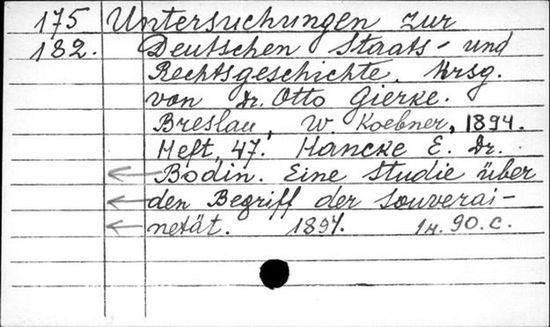 175 Untersuchungen zur
182. Deutschen Staats- und
Rechtsgeschichte. Hrsg.
von Dr. Otto Gierke.
Breslau, W. Koebner, 1894.
Heft 47. Hancke E. Dr.
Bodin. Eine Studie über
den Begriff der Souverai-
netät. 1894. 1 r. 90. c.